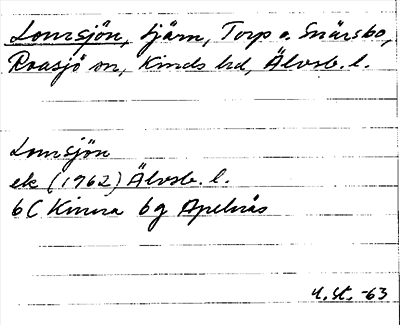 Lomsjön, tjärn, Torp o. Snärsbo,
Roasjö sn, Kinds hd, Älvsb. l.
Lomsjön
ek (1962) Älvsb. l.
6C Kinna 6g Apelnäs
u. st. -63